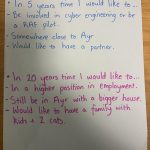 • In 5 years time I would like to...
- Be involved in cyber engineering or be
a RAF pilot.
- Somewhere close to Ayr
- Would like to have a partner.
• In 20 years time I would like to...
- In a higher position in employment.
- Still be in Ayr with a bigger house.
- Would like to have a family with
kids + 2 cats.